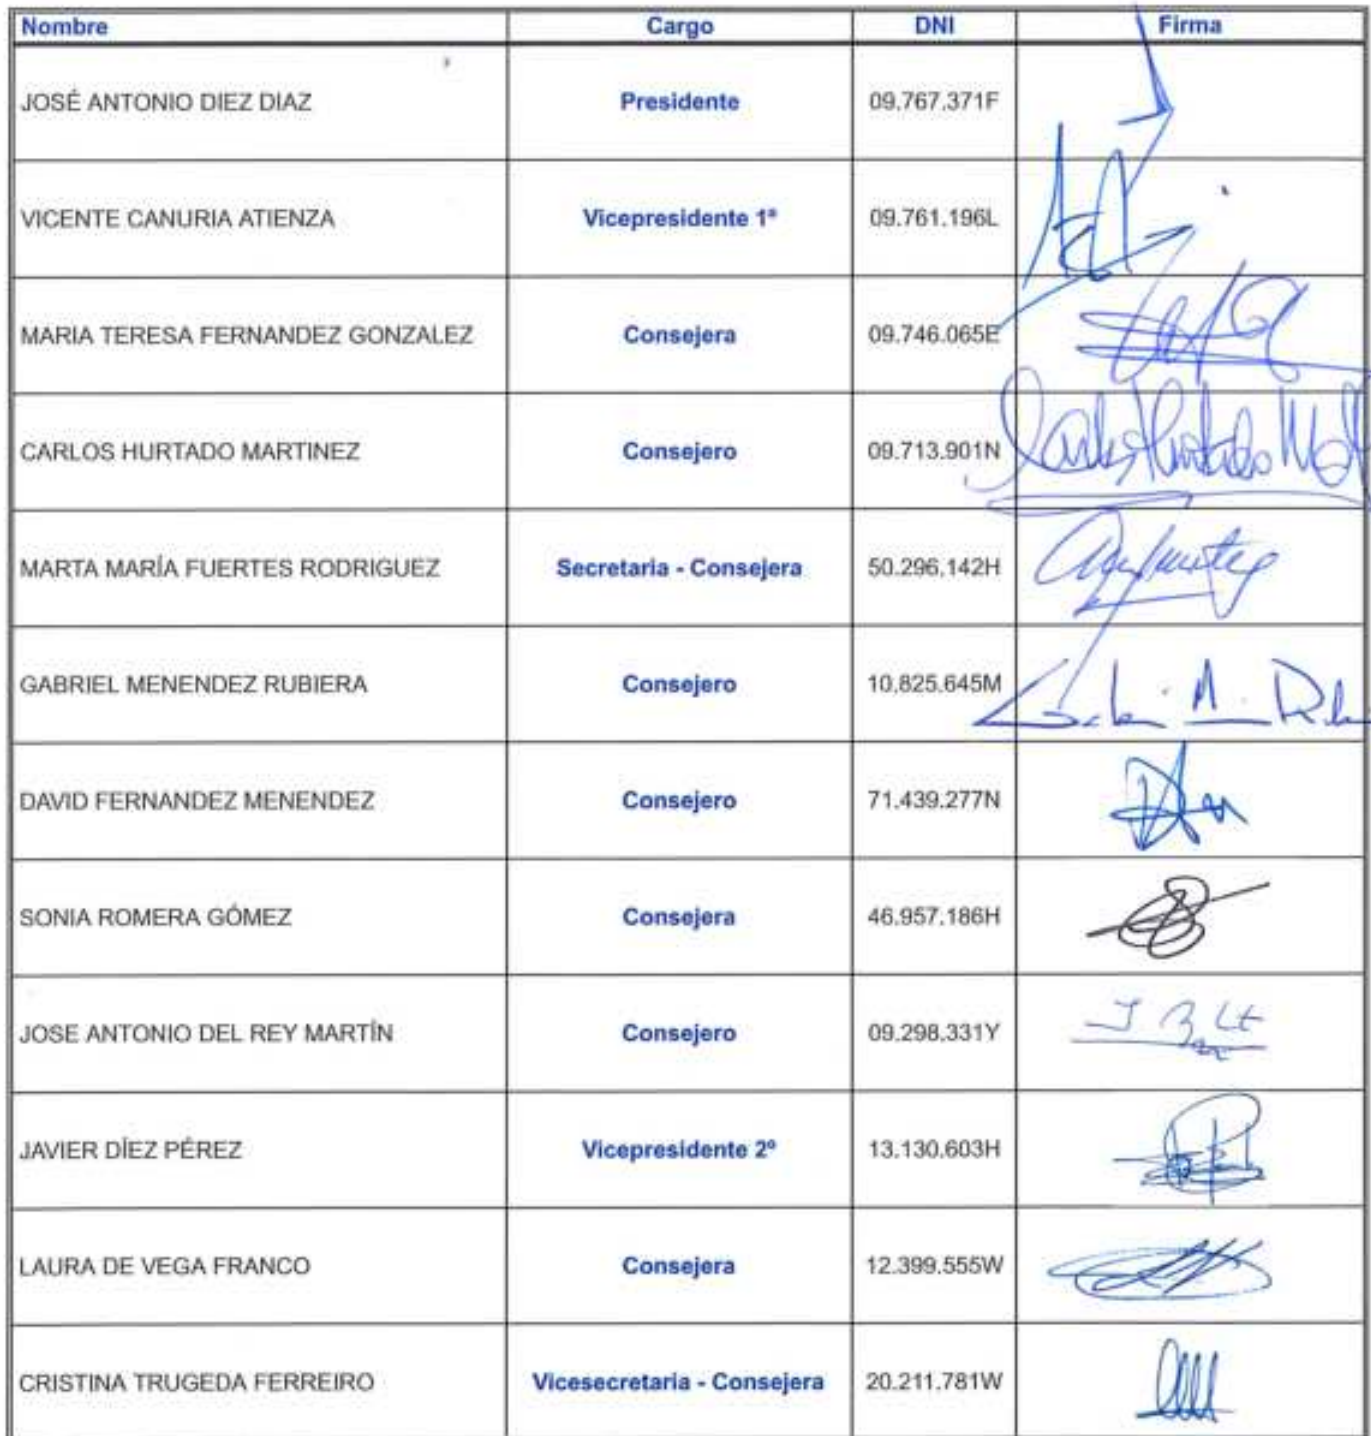 Nombre Cargo DNI Firma
JOSÉ ANTONIO DIEZ DIAZ Presidente 09.767.371F
VICENTE CANURIA ATIENZA Vicepresidente 1ª 09.761.196L
MARIA TERESA FERNANDEZ GONZALEZ Consejera 09.746.065E
CARLOS HURTADO MARTINEZ Consejero 09.713.901N Carlos Hurtado
MARTA MARÍA FUERTES RODRIGUEZ Secretaria - Consejera 50.296.142H
GABRIEL MENENDEZ RUBIERA Consejero 10.825.645M
DAVID FERNANDEZ MENENDEZ Consejero 71.439.277N
SONIA ROMERA GÓMEZ Consejera 46.957.186H
JOSE ANTONIO DEL REY MARTÍN Consejero 09.298.331Y
JAVIER DÍEZ PÉREZ Vicepresidente 2º 13.130.603H
LAURA DE VEGA FRANCO Consejera 12.399.555W
CRISTINA TRUGEDA FERREIRO Vicesecretaria - Consejera 20.211.781W